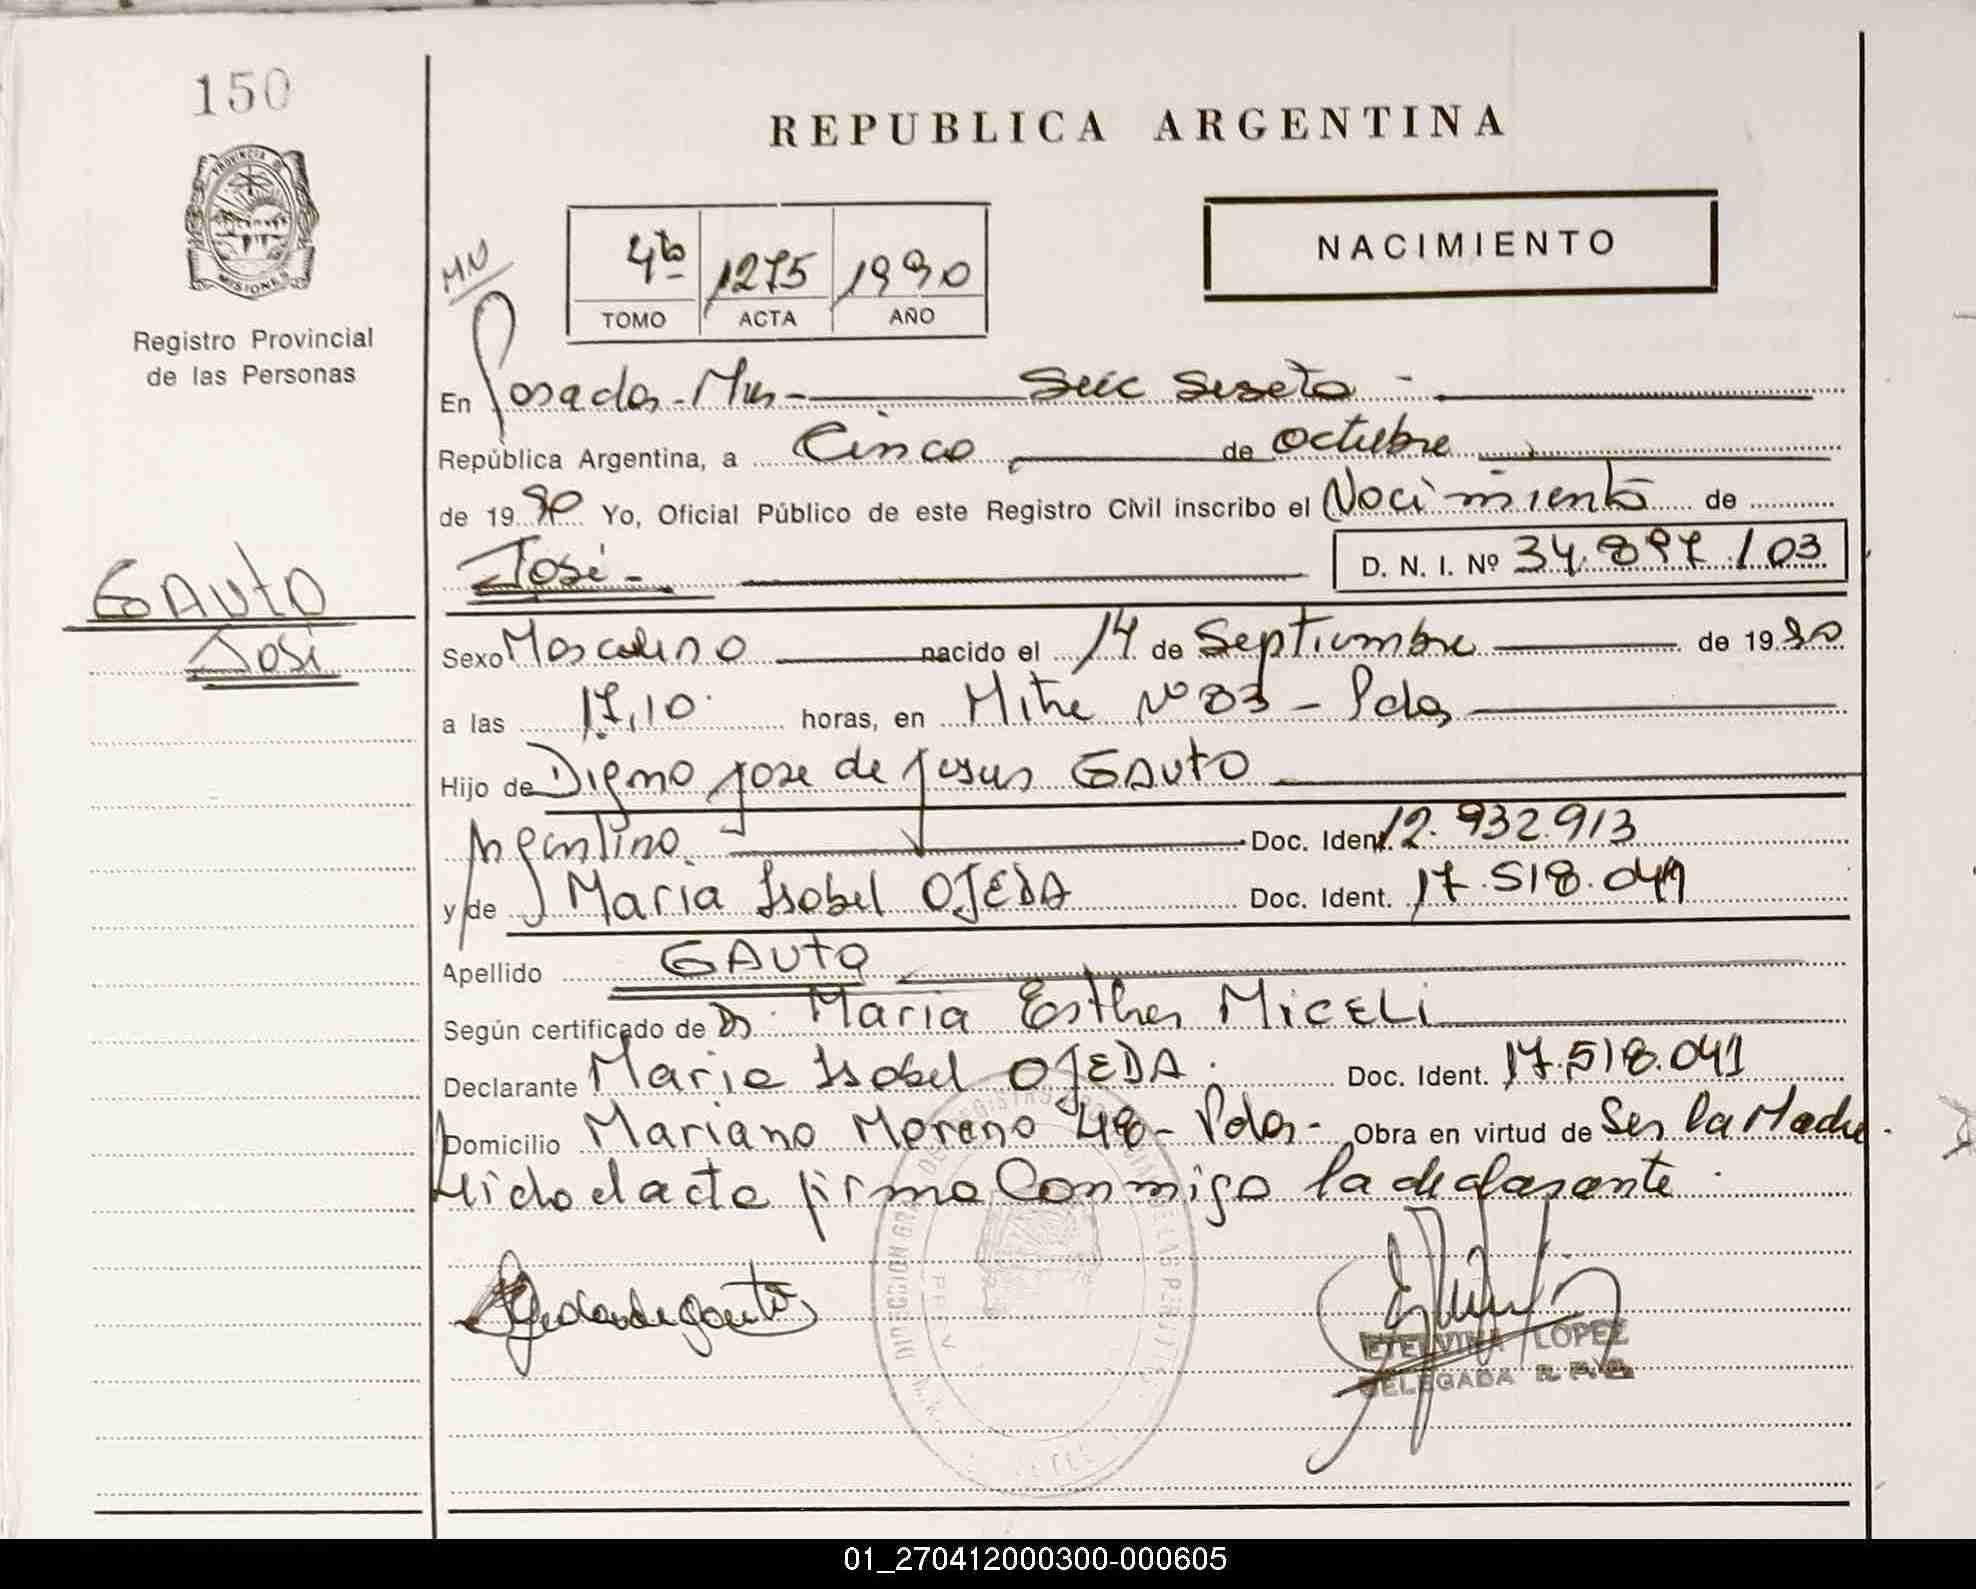 150
REPUBLICA ARGENTINA
PROVINCIA DE
MISIONES
NACIMIENTO
4to 1275 1990
TOMO ACTA AÑO
Registro Provincial
de las Personas
En Posadas - Mnes - Secc Sexta -
República Argentina, a Cinco de Octubre
de 1990 Yo, Oficial Público de este Registro Civil inscribo el Nacimiento de
José - D. N. I. Nº 34.897.103
GAUTO
José
Sexo Masculino nacido el 14 de Septiembre de 1990
a las 17,10 horas, en Mitre Nº 83 - Pdas
Hijo de Digno Jose de Jesus GAUTO
Argentino. Doc. Ident. 12.932.913
y de Maria Isabel OJEDA Doc. Ident. 17.518.041
Apellido GAUTO
Según certificado de Dr. Maria Esther MICELI
Declarante Maria Isabel OJEDA. Doc. Ident. 17.518.041
Domicilio Mariano Moreno 48 - Pdas - Obra en virtud de Ser la Madre.
Leido el acta firma Conmigo la declarante.
ETELVINA LOPEZ
DELEGADA R. P. P.
01_270412000300-000605